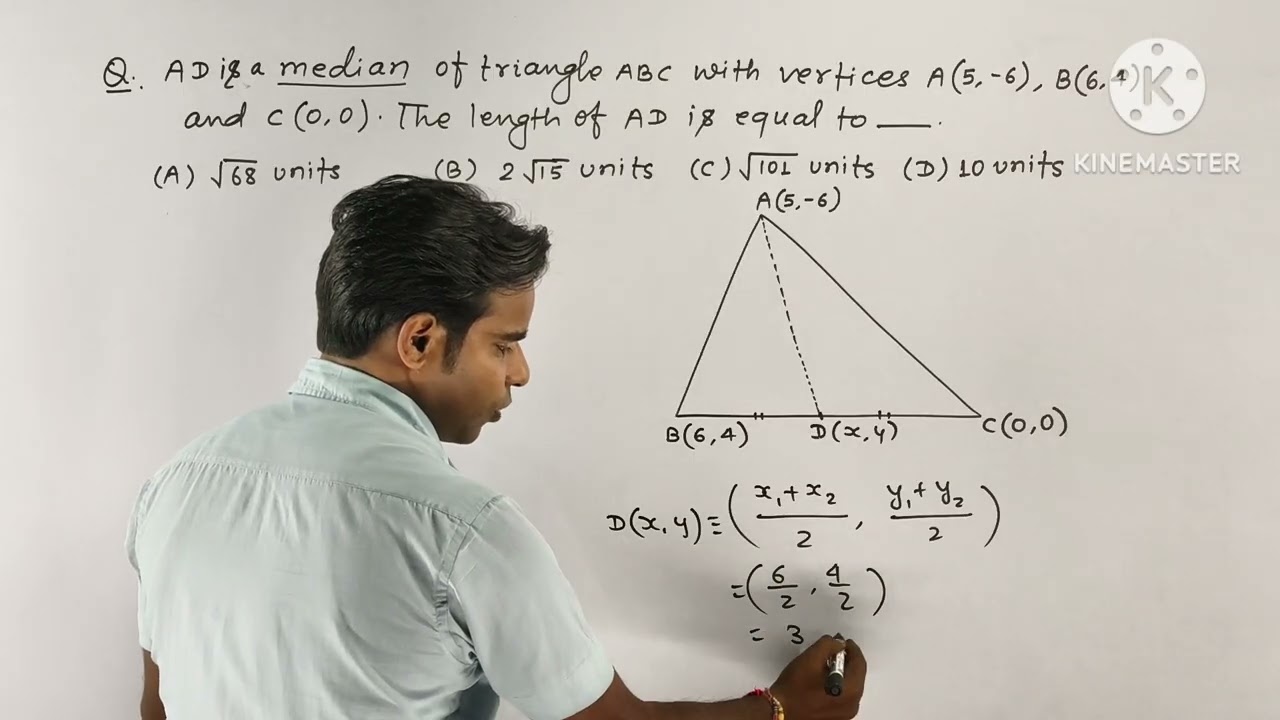 Q. AD is a median of triangle ABC with vertices A(5,-6), B(6,4)
and C(0,0). The length of AD is equal to ___.
(A) √68 units (B) 2√15 units (C) √101 units (D) 10 units
KINEMASTER
A(5,-6)
B(6,4) D(x,y) C(0,0)
D(x,y) ≡ ( x₁+x₂ / 2 , y₁+y₂ / 2 )
= ( 6/2 , 4/2 )
= 3